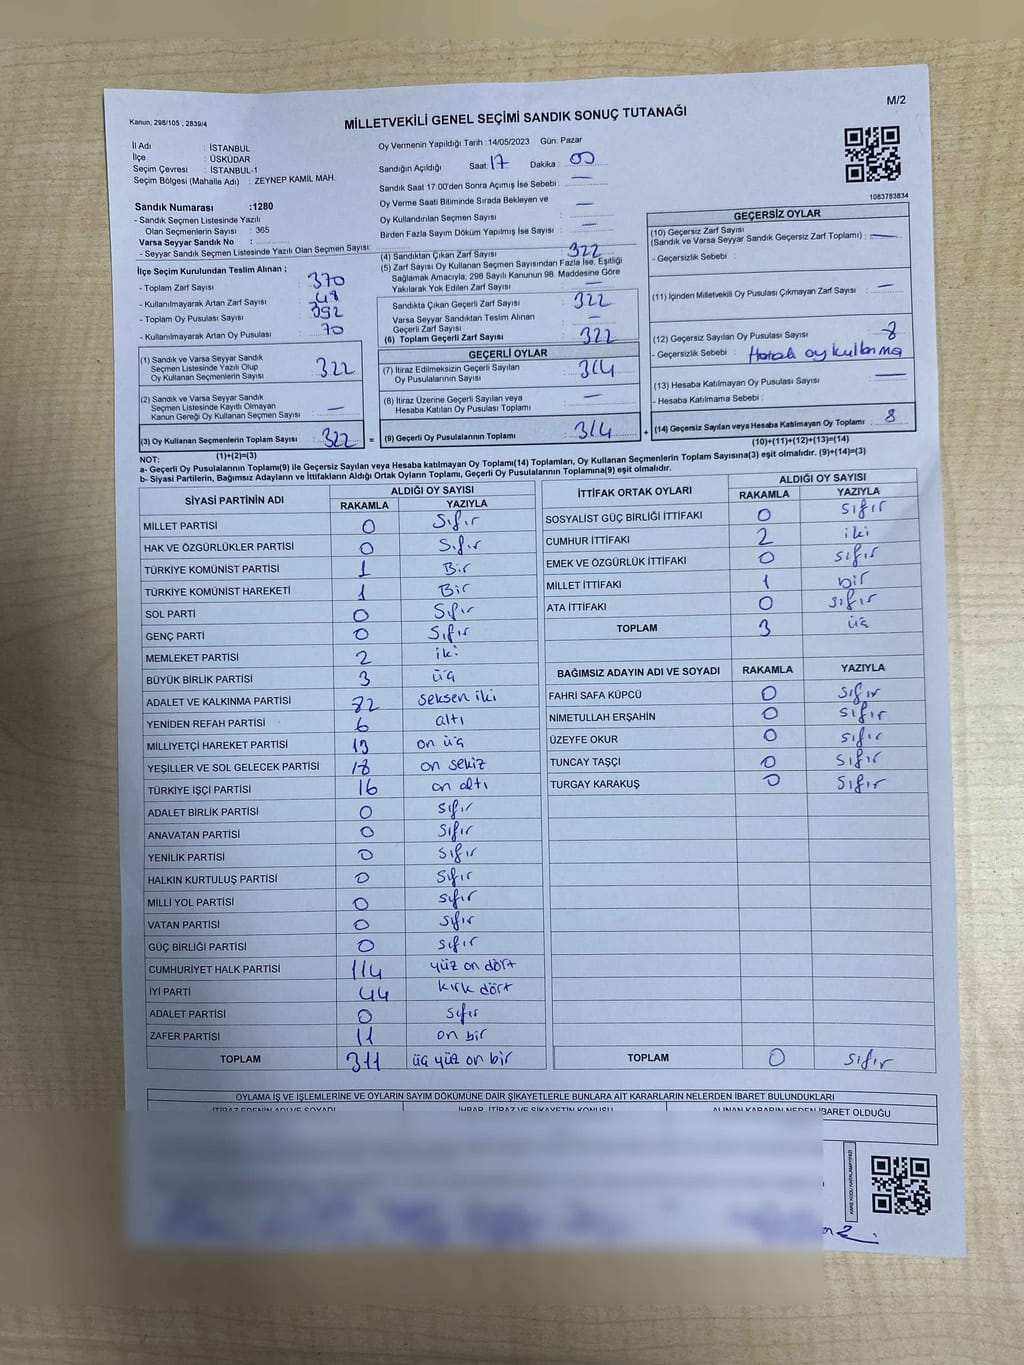 M/2
Kanun, 298/105 , 2839/4
MİLLETVEKİLİ GENEL SEÇİMİ SANDIK SONUÇ TUTANAĞI
İl Adı : İSTANBUL
İlçe : ÜSKÜDAR
Seçim Çevresi : İSTANBUL-1
Seçim Bölgesi (Mahalle Adı) : ZEYNEP KAMİL MAH.
Sandık Numarası :1280
- Sandık Seçmen Listesinde Yazılı
Olan Seçmenlerin Sayısı : 365
Varsa Seyyar Sandık No :
- Seyyar Sandık Seçmen Listesinde Yazılı Olan Seçmen Sayısı:
İlçe Seçim Kurulundan Teslim Alınan ;
- Toplam Zarf Sayısı : 370
- Kullanılmayarak Artan Zarf Sayısı : 48
- Toplam Oy Pusulası Sayısı : 392
- Kullanılmayarak Artan Oy Pusulası : 70
(1) Sandık ve Varsa Seyyar Sandık
Seçmen Listesinde Yazılı Olup
Oy Kullanan Seçmenlerin Sayısı : 322
(2) Sandık ve Varsa Seyyar Sandık
Seçmen Listesinde Kayıtlı Olmayan
Kanun Gereği Oy Kullanan Seçmen Sayısı : —
(3) Oy Kullanan Seçmenlerin Toplam Sayısı : 322 =
(1)+(2)=(3)
Oy Vermenin Yapıldığı Tarih :14/05/2023 Gün: Pazar
Sandığın Açıldığı Saat: 17 Dakika : 00
Sandık Saat 17.00'den Sonra Açımış İse Sebebi : —
Oy Verme Saati Bitiminde Sırada Bekleyen ve
Oy Kullandırılan Seçmen Sayısı : —
Birden Fazla Sayım Döküm Yapılmış İse Sayısı : —
(4) Sandıktan Çıkan Zarf Sayısı : 322
(5) Zarf Sayısı Oy Kullanan Seçmen Sayısından Fazla İse, Eşitliği
Sağlamak Amacıyla, 298 Sayılı Kanunun 98. Maddesine Göre
Yakılarak Yok Edilen Zarf Sayısı : —
Sandıkta Çıkan Geçerli Zarf Sayısı : 322
Varsa Seyyar Sandıktan Teslim Alınan
Geçerli Zarf Sayısı : —
(6) Toplam Geçerli Zarf Sayısı : 322
GEÇERLİ OYLAR
(7) İtiraz Edilmeksizin Geçerli Sayılan
Oy Pusulalarının Sayısı : 314
(8) İtiraz Üzerine Geçerli Sayılan veya
Hesaba Katılan Oy Pusulası Toplamı : —
(9) Geçerli Oy Pusulalarının Toplamı : 314 +
1083783834
GEÇERSİZ OYLAR
(10) Geçersiz Zarf Sayısı
(Sandık ve Varsa Seyyar Sandık Geçersiz Zarf Toplamı) : —
- Geçersizlik Sebebi :
(11) İçinden Milletvekili Oy Pusulası Çıkmayan Zarf Sayısı : —
(12) Geçersiz Sayılan Oy Pusulası Sayısı : 8
- Geçersizlik Sebebi : Hatalı oy kullanma
(13) Hesaba Katılmayan Oy Pusulası Sayısı : —
- Hesaba Katılmama Sebebi :
(14) Geçersiz Sayılan veya Hesaba Katılmayan Oy Toplamı : 8
(10)+(11)+(12)+(13)=(14)
NOT:
a- Geçerli Oy Pusulalarının Toplamı(9) ile Geçersiz Sayılan veya Hesaba katılmayan Oy Toplamı(14) Toplamları, Oy Kullanan Seçmenlerin Toplam Sayısına(3) eşit olmalıdır. (9)+(14)=(3)
b- Siyasi Partilerin, Bağımsız Adayların ve İttifakların Aldığı Ortak Oyların Toplamı, Geçerli Oy Pusulalarının Toplamına(9) eşit olmalıdır.
SİYASİ PARTİNİN ADI ALDIĞI OY SAYISI
RAKAMLA YAZIYLA
MİLLET PARTİSİ 0 Sıfır
HAK VE ÖZGÜRLÜKLER PARTİSİ 0 Sıfır
TÜRKİYE KOMÜNİST PARTİSİ 1 Bir
TÜRKİYE KOMÜNİST HAREKETİ 1 Bir
SOL PARTİ 0 Sıfır
GENÇ PARTİ 0 Sıfır
MEMLEKET PARTİSİ 2 iki
BÜYÜK BİRLİK PARTİSİ 3 üç
ADALET VE KALKINMA PARTİSİ 82 seksen iki
YENİDEN REFAH PARTİSİ 6 altı
MİLLİYETÇİ HAREKET PARTİSİ 13 on üç
YEŞİLLER VE SOL GELECEK PARTİSİ 18 on sekiz
TÜRKİYE İŞÇİ PARTİSİ 16 on altı
ADALET BİRLİK PARTİSİ 0 sıfır
ANAVATAN PARTİSİ 0 sıfır
YENİLİK PARTİSİ 0 sıfır
HALKIN KURTULUŞ PARTİSİ 0 sıfır
MİLLİ YOL PARTİSİ 0 sıfır
VATAN PARTİSİ 0 sıfır
GÜÇ BİRLİĞİ PARTİSİ 0 sıfır
CUMHURİYET HALK PARTİSİ 114 yüz on dört
İYİ PARTİ 44 kırk dört
ADALET PARTİSİ 0 sıfır
ZAFER PARTİSİ 11 on bir
TOPLAM 311 üç yüz on bir
İTTİFAK ORTAK OYLARI ALDIĞI OY SAYISI
RAKAMLA YAZIYLA
SOSYALİST GÜÇ BİRLİĞİ İTTİFAKI 0 sıfır
CUMHUR İTTİFAKI 2 iki
EMEK VE ÖZGÜRLÜK İTTİFAKI 0 sıfır
MİLLET İTTİFAKI 1 bir
ATA İTTİFAKI 0 sıfır
TOPLAM 3 üç
BAĞIMSIZ ADAYIN ADI VE SOYADI RAKAMLA YAZIYLA
FAHRİ SAFA KÜPCÜ 0 sıfır
NİMETULLAH ERŞAHİN 0 sıfır
ÜZEYFE OKUR 0 sıfır
TUNCAY TAŞÇI 0 sıfır
TURGAY KARAKUŞ 0 sıfır
TOPLAM 0 sıfır
OYLAMA İŞ VE İŞLEMLERINE VE OYLARIN SAYIM DÖKÜMÜNE DAİR ŞİKAYETLERLE BUNLARA AİT KARARLARIN NELERDEN İBARET BULUNDUKLARI
İTİRAZ EDENİN ADI VE SOYADI İHBAR, İTİRAZ VE ŞİKAYETİN KONUSU ALINAN KARARIN NEDEN İBARET OLDUĞU